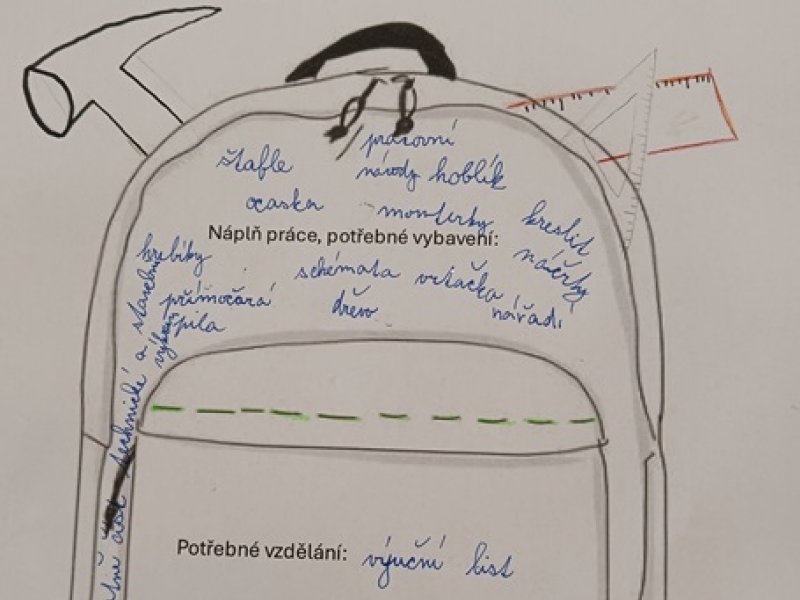 pracovní
štafle návody hoblík
ocaska montérky kreslit
Náplň práce, potřebné vybavení:
náčrty
hřebíky schémata vrtačka
přímočará dřevo nářadí
pila
technické a stavební
Potřebné vzdělání: výuční list